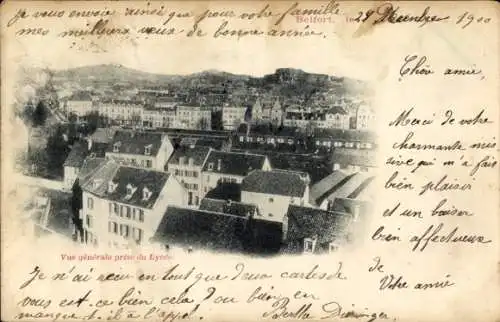 je vous envoie ainsi que pour votre famille
mes meilleurs vœux de bonne année.
Belfort, le 29 Décembre 1900
Chère amie,
Merci de votre
charmante mis-
sive qui m'a fait
bien plaisir
et un baiser
bien affectueux
de
Votre amie
Vue générale prise du Lycée
Je n'ai reçu en tout que deux cartes de
vous est ce bien cela, ou bien en
manque-t-il à l'appel.
Berthe